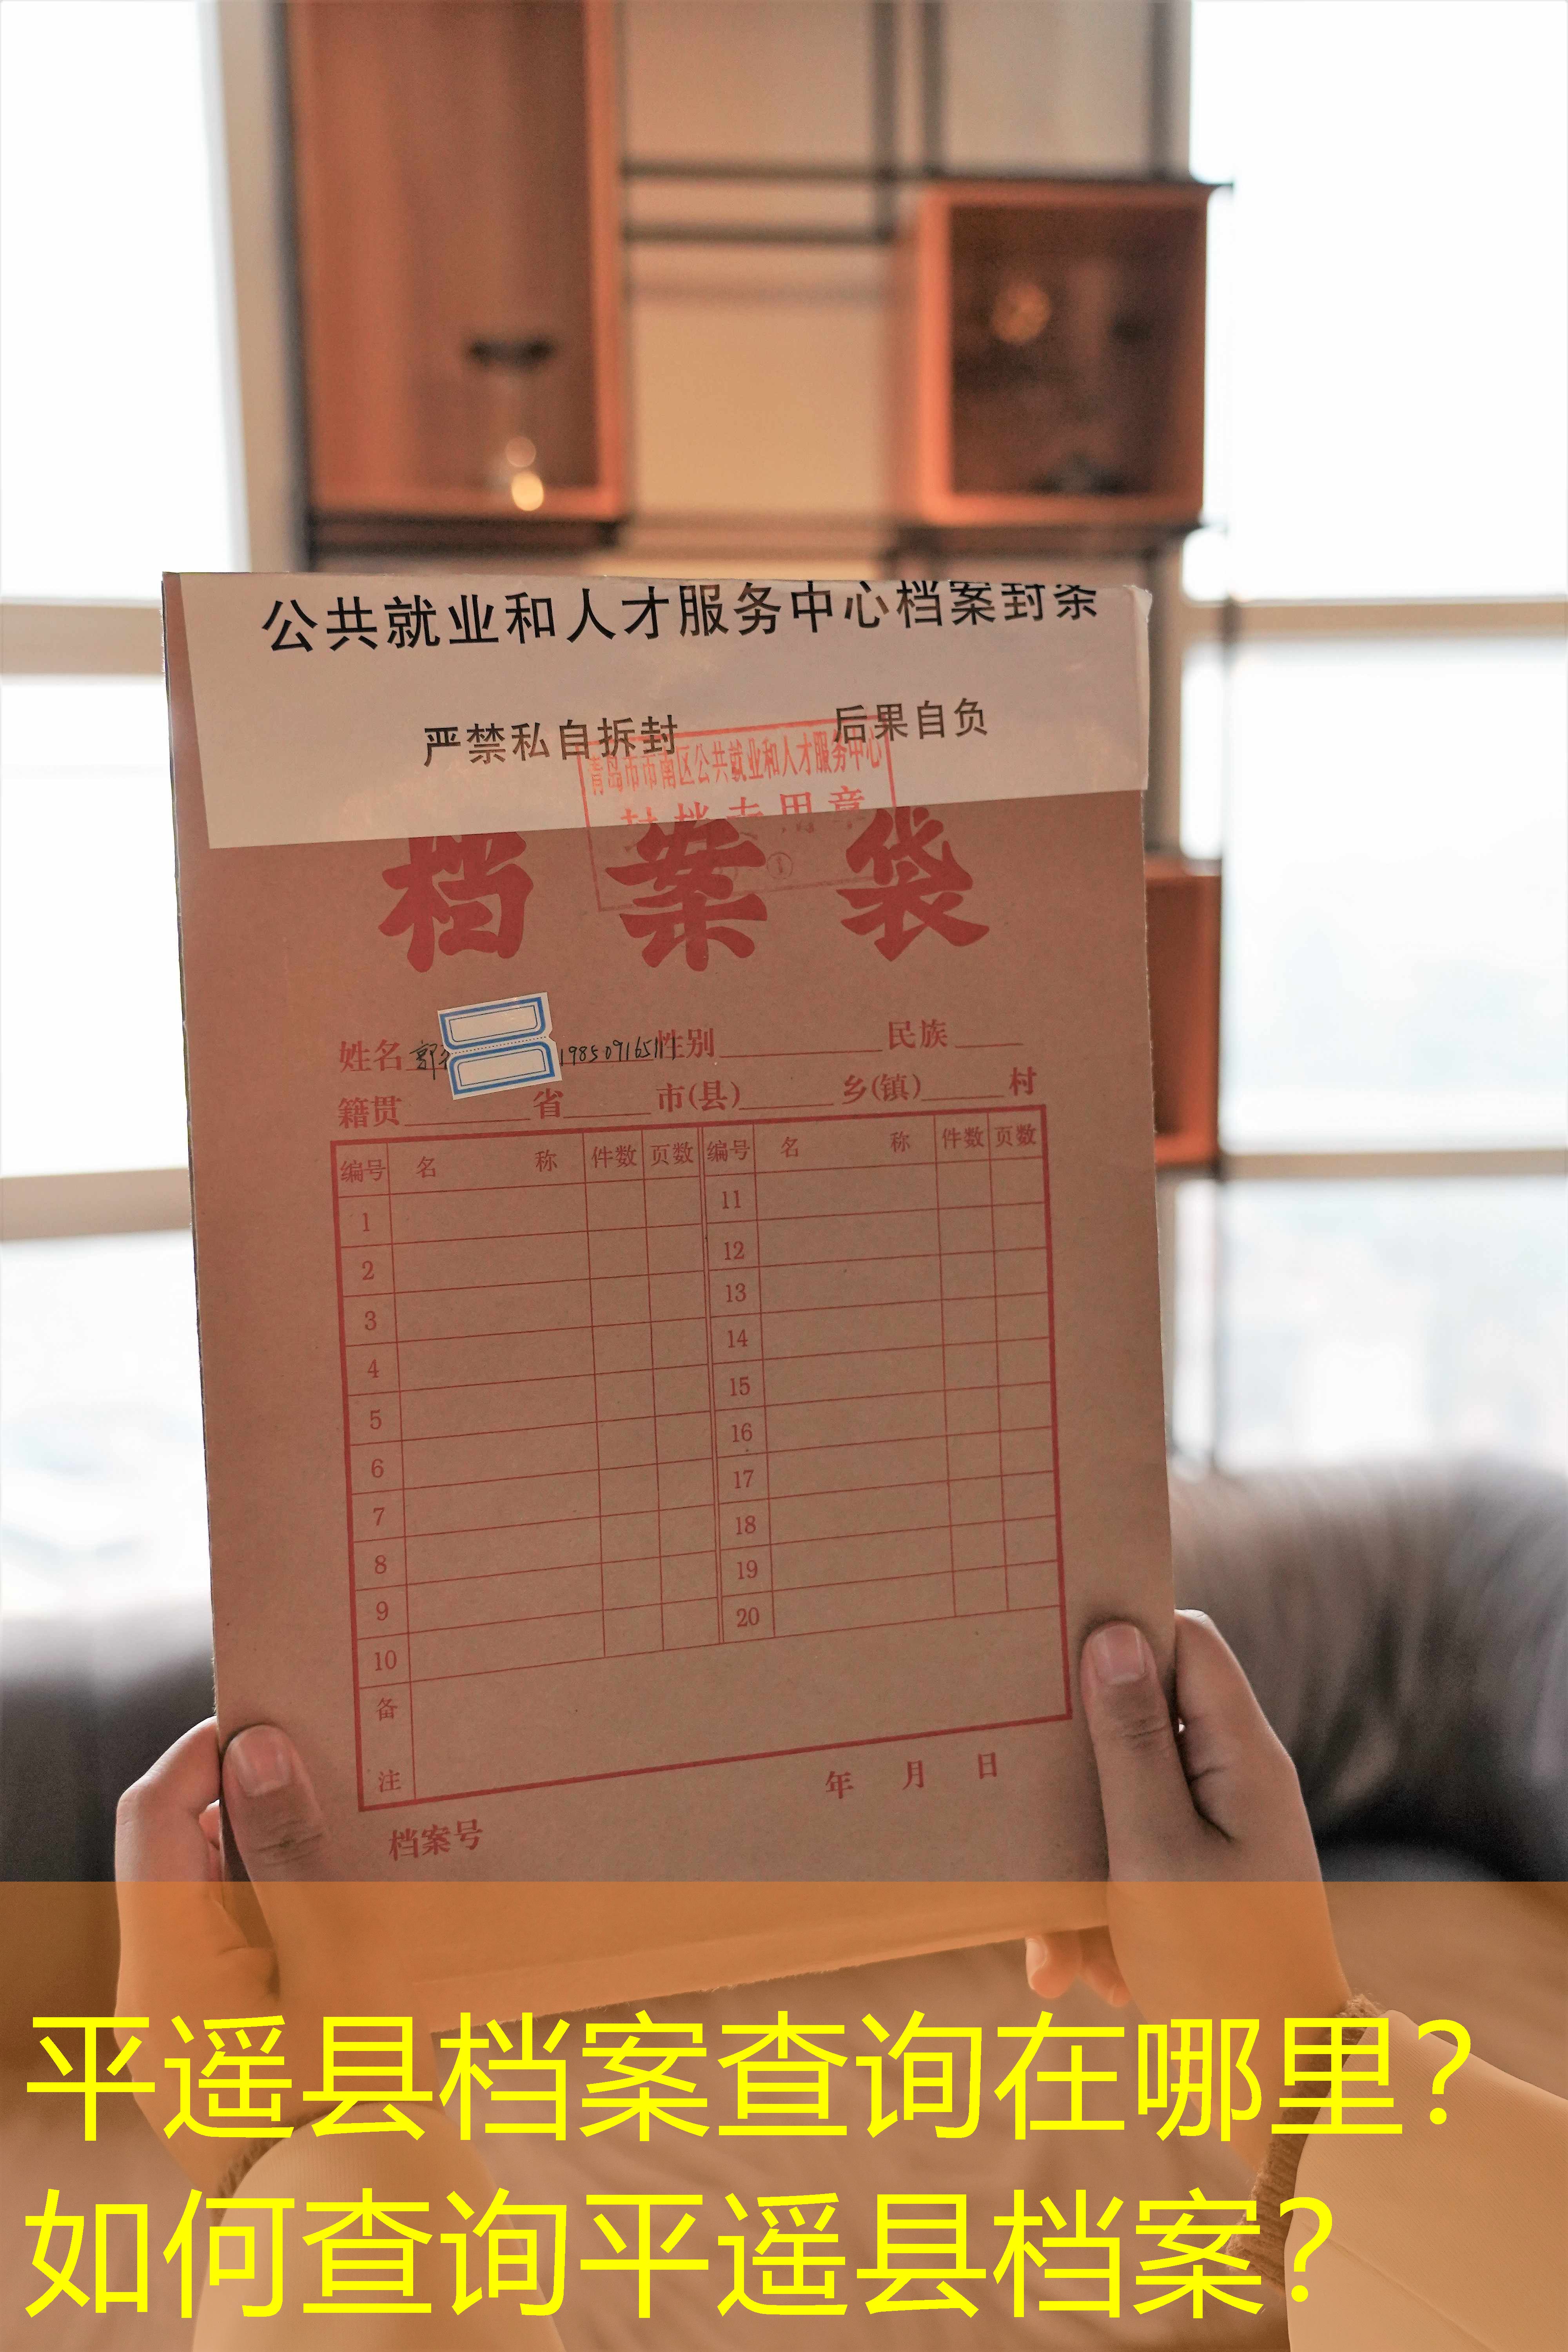 公共就业和人才服务中心档案封条
严禁私自拆封 后果自负
青岛市市南区公共就业和人才服务中心
封档专用章
档案袋
姓名 郭 19850916511 性别 民族
籍贯 省 市(县) 乡(镇) 村
编号 名称 件数 页数 编号 名称 件数 页数
1 11
2 12
3 13
4 14
5 15
6 16
7 17
8 18
9 19
10 20
备注
年 月 日
档案号
平遥县档案查询在哪里?
如何查询平遥县档案?